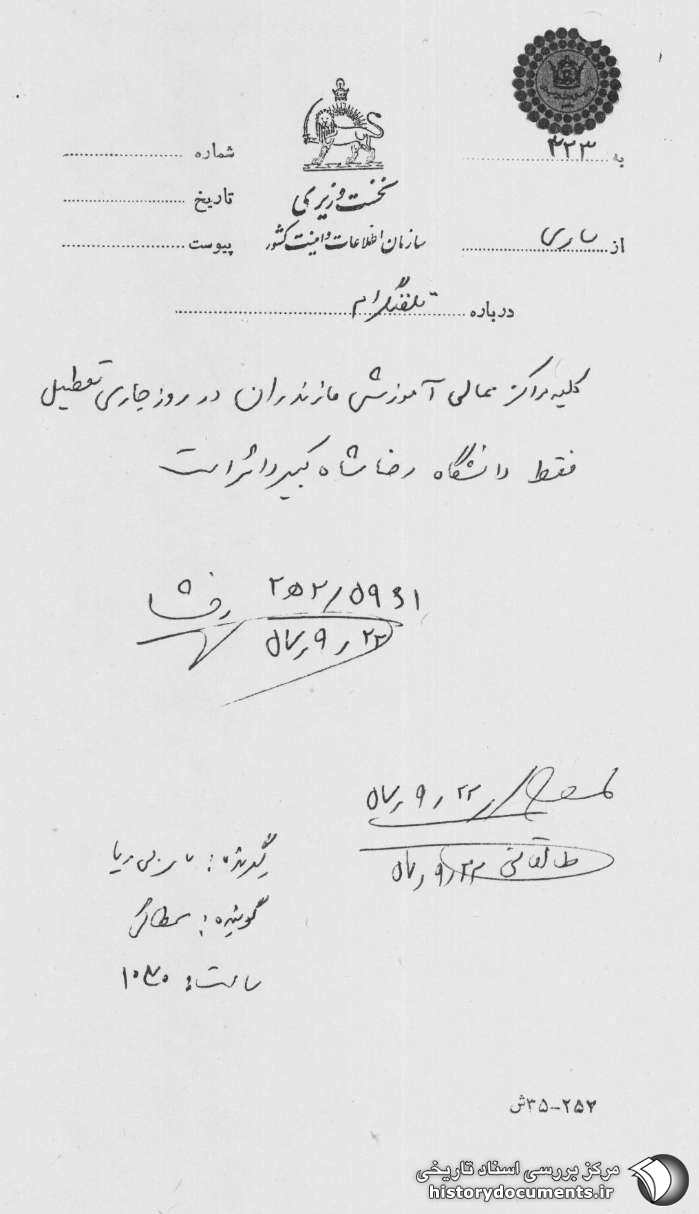 به ۳۲۳
شماره
نخست وزیری
تاریخ
سازمان اطلاعات و امنیت کشور
از ساری
پیوست
درباره تلفنگرام
کلیه مراکز عالی آموزشی مازندران در روز جاری تعطیل
فقط دانشگاه رضا شاه کبیر دائر است
۲۲ ر ۹ ر ۵۷
۲۲ ر ۹ ر ۵۷
طالقانی ۲۲ ر ۹ ر ۵۷
گیرنده :
گوینده :
ساعت : ۱۰۳۰
۲۵۲-۳۵ش
مرکز بررسی اسناد تاریخی
historydocuments.ir